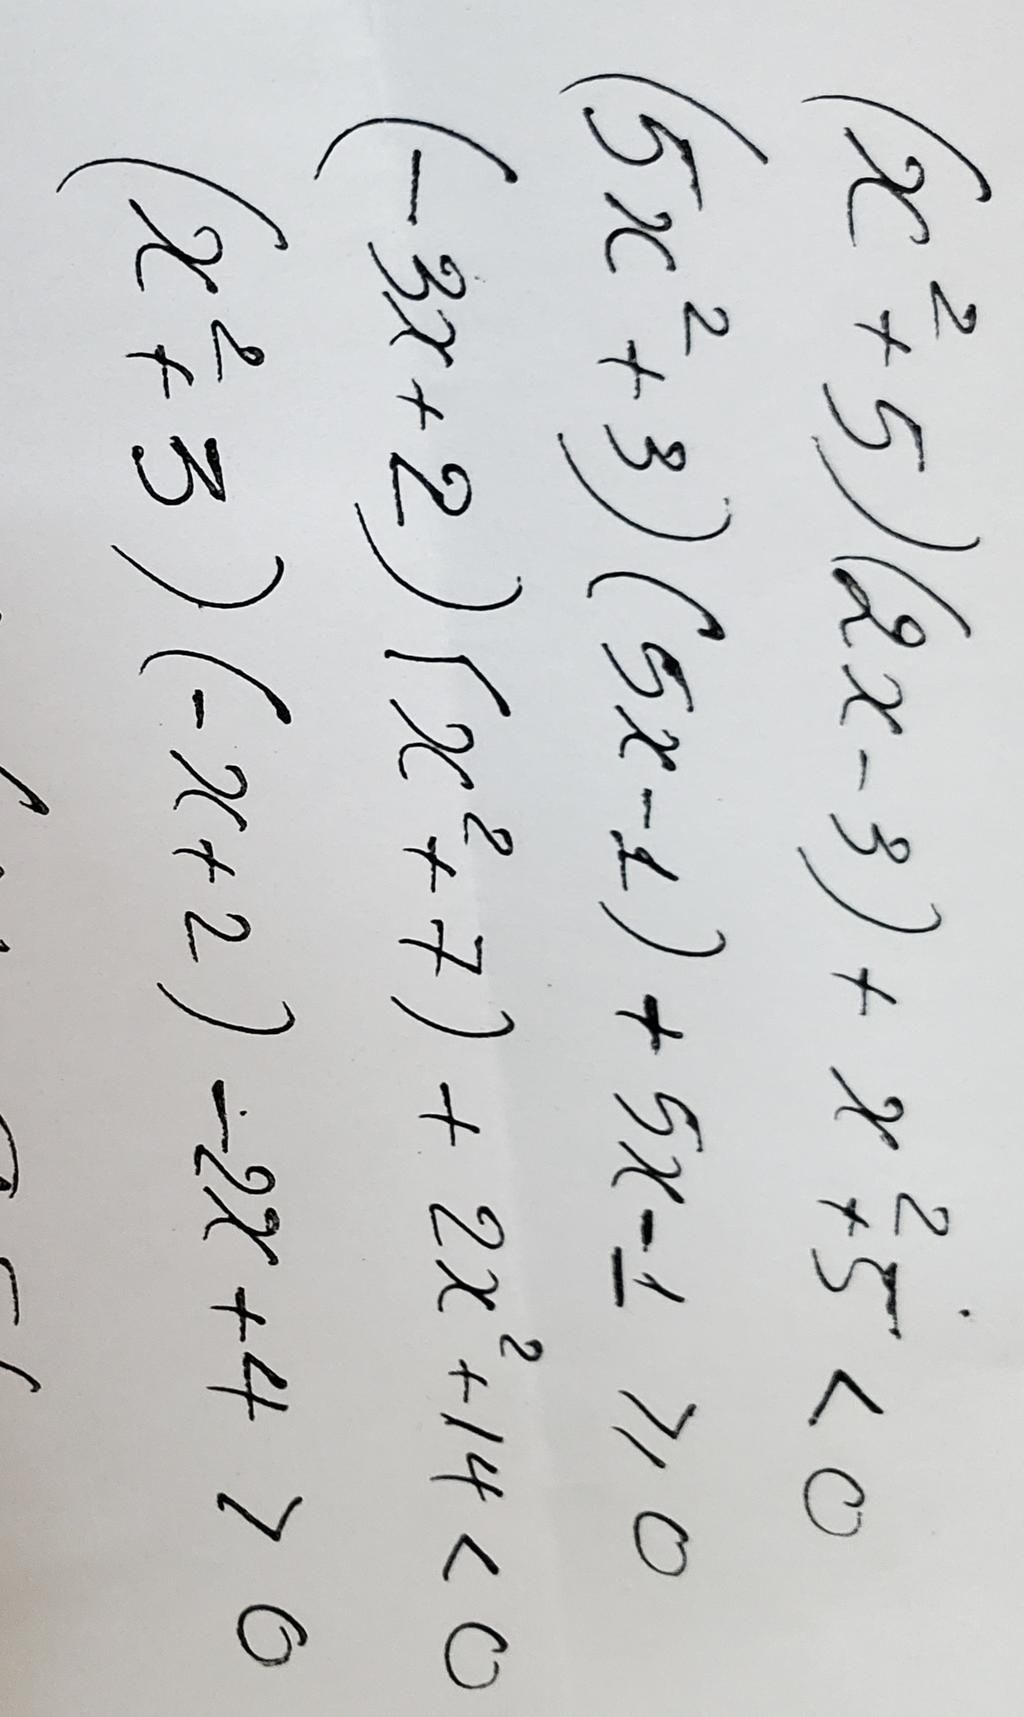 (x²+5)(2x-3)+x²+5<0
(5x²+3)(5x-1)+5x-1⩾0
(-3x+2)(x²+7)+2x²+14<0
(x²+3)(-x+2)-2x+4>0